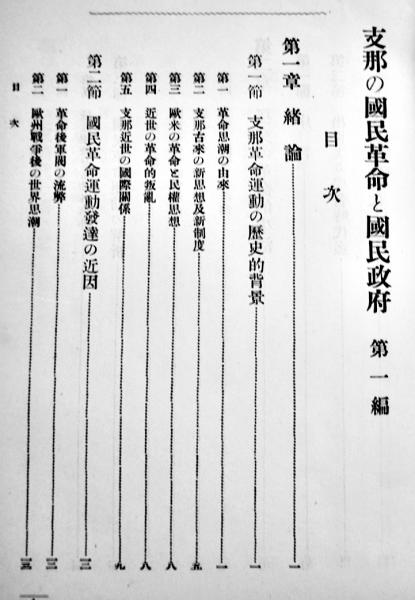 支那の國民革命と國民政府 第一編
目次
第一章 緒論 一
第一節 支那革命運動の歷史的背景 一
第一 革命思潮の由來 一
第二 支那古來の新思想及新制度 五
第三 歐米の革命と民權思想 八
第四 近世の革命的叛亂 八
第五 支那近世の國際關係 九
第二節 國民革命運動發達の近因 一二
第一 革命後軍閥の流弊 一二
第二 歐州戰爭後の世界思潮 一三
目次